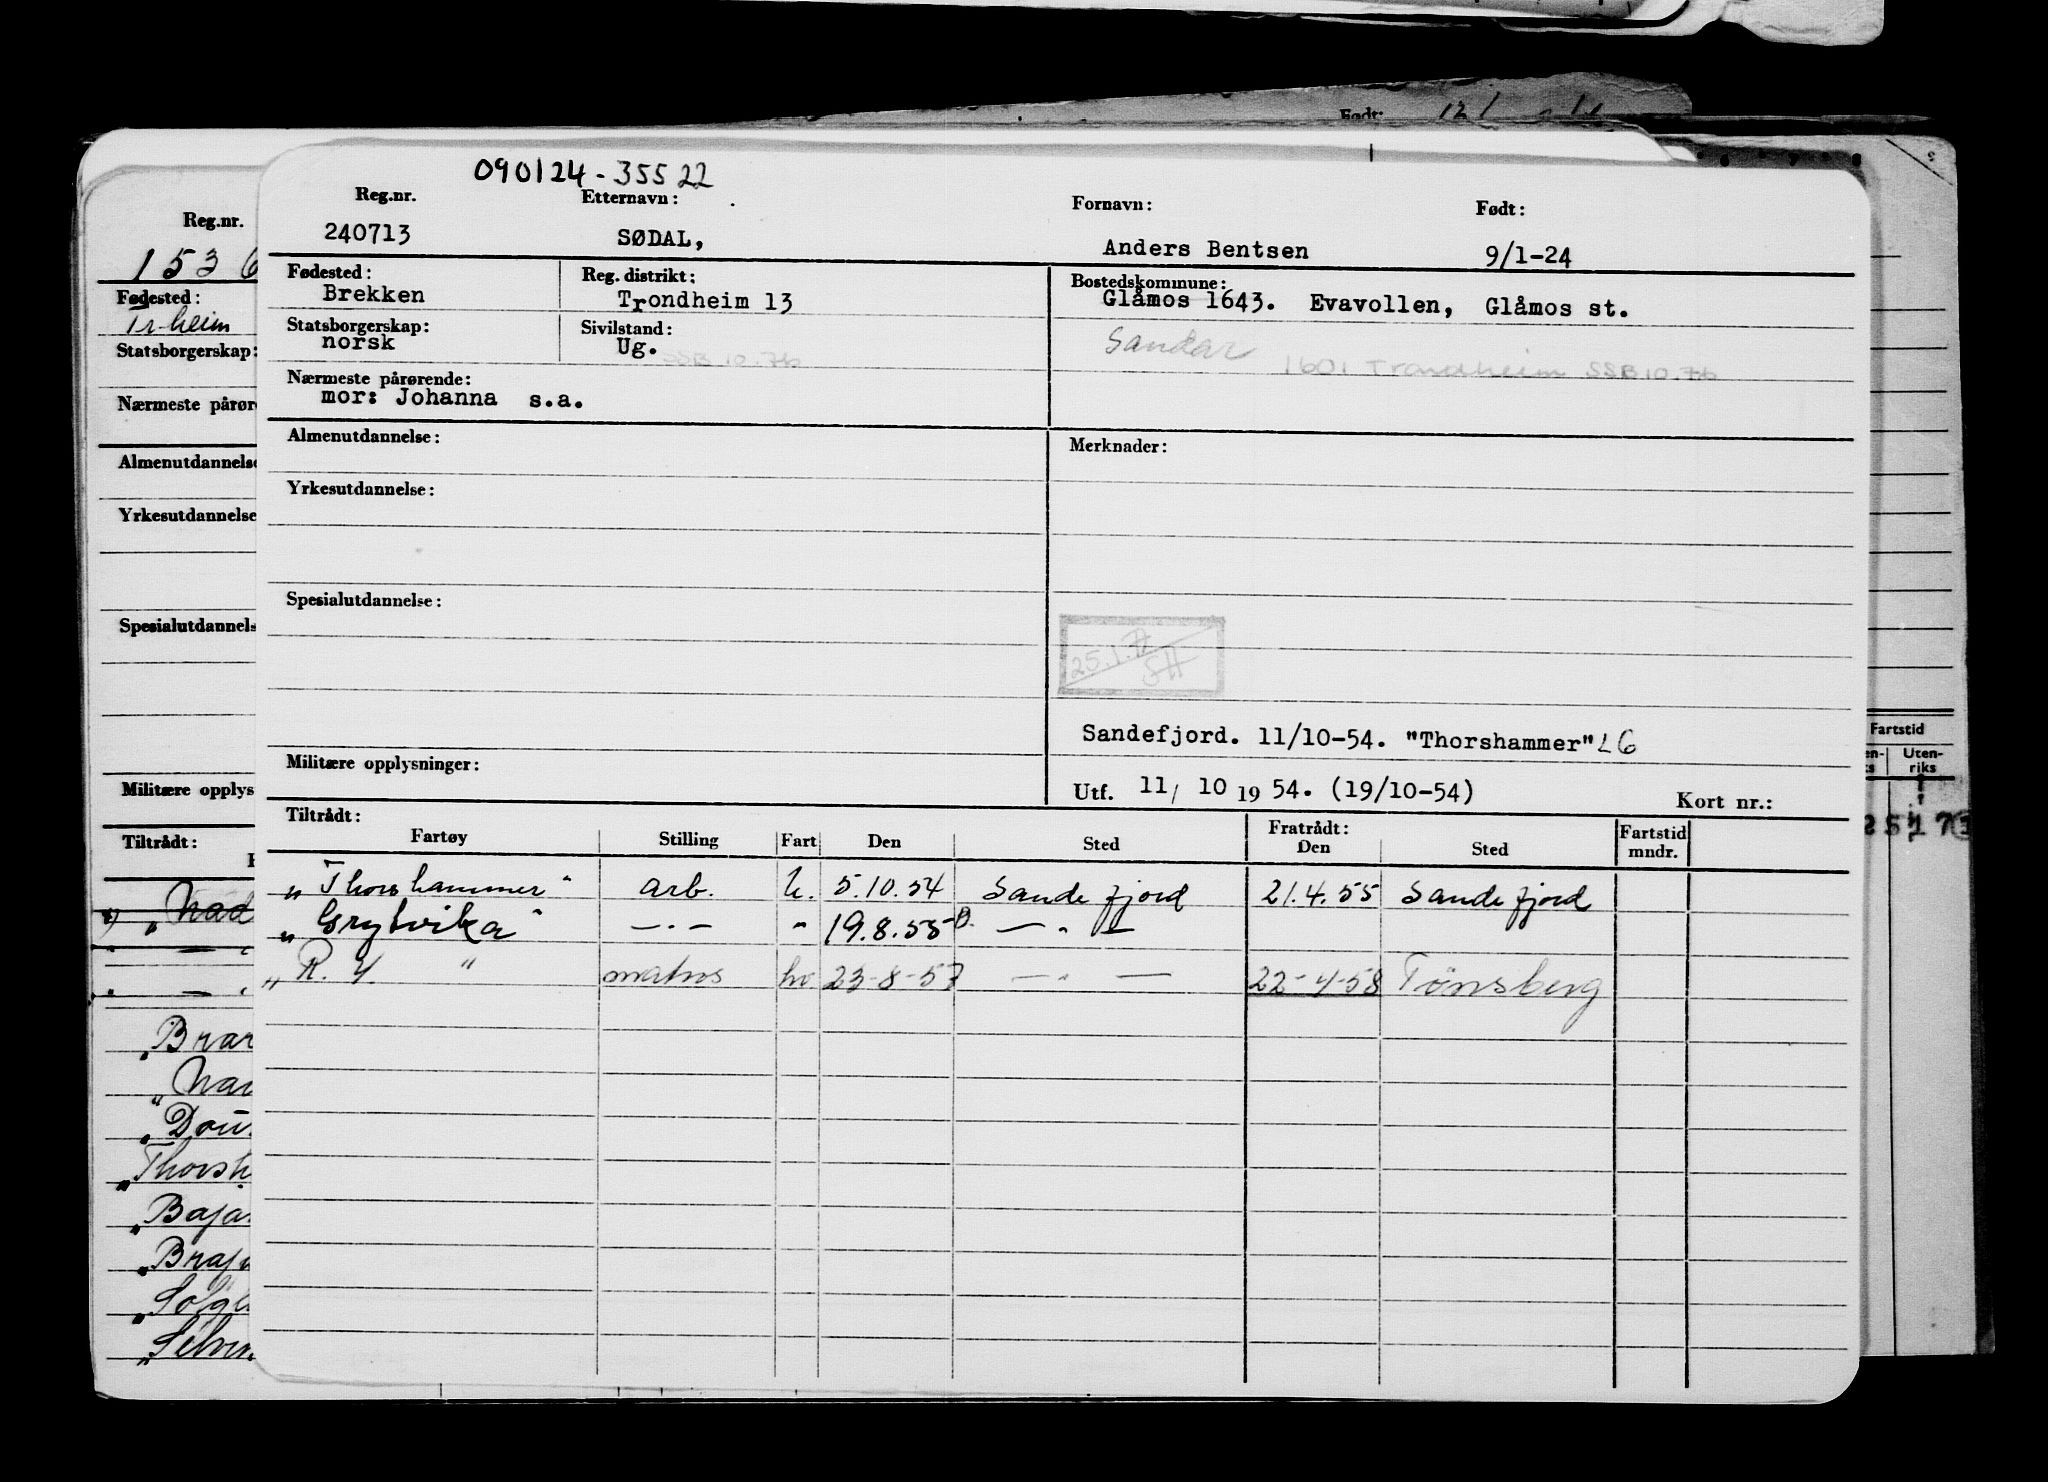 Født:
090124-35522
Reg.nr. Etternavn: Fornavn: Født:
240713 SØDAL, Anders Bentsen 9/1-24
Fødested: Reg. distrikt: Bostedskommune:
Brekken Trondheim 13 Glåmos 1643. Evavollen, Glåmos st.
Statsborgerskap: Sivilstand: Sandar
norsk Ug. SSB 10.76 1601 Trondheim SSB 10.76
Nærmeste pårørende:
mor: Johanna s.a.
Almenutdannelse: Merknader:
Yrkesutdannelse:
Spesialutdannelse:
25.1.77
SH
Sandefjord. 11/10-54. "Thorshammer" LG
Militære opplysninger:
Utf. 11/ 10 19 54. (19/10-54) Kort nr.:
Tiltrådt: Fratrådt: Fartstid
Fartøy Stilling Fart Den Sted Den Sted mndr.
„Thorshammer" arb. h. 5.10.54 Sandefjord 21.4.55 Sandefjord
„Grytvika" —.— " 19.8.55 — " —
„R. 4. " matros hv 23-8-57 — " — 22-4-58 Tønsberg
Reg.nr.
1536
Fødested:
Tr-heim
Statsborgerskap:
Nærmeste pårør
Almenutdannelse
Yrkesutdannelse
Spesialutdannels
Militære opplys
Tiltrådt:
„Nad
„Bran
„Nar
„Dou
„Thorsh
„Baja
„Braj
„Solgl
„Selvin
Fartstid
Uten-
riks